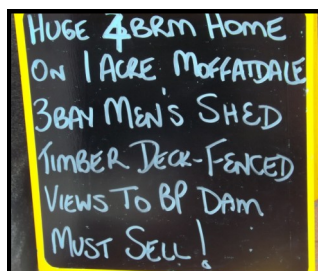 HUGE 4 BRM HOME
ON 1 ACRE MOFFATDALE
3BAY MEN'S SHED
TIMBER DECK-FENCED
VIEWS TO BP DAM
MUST SELL!